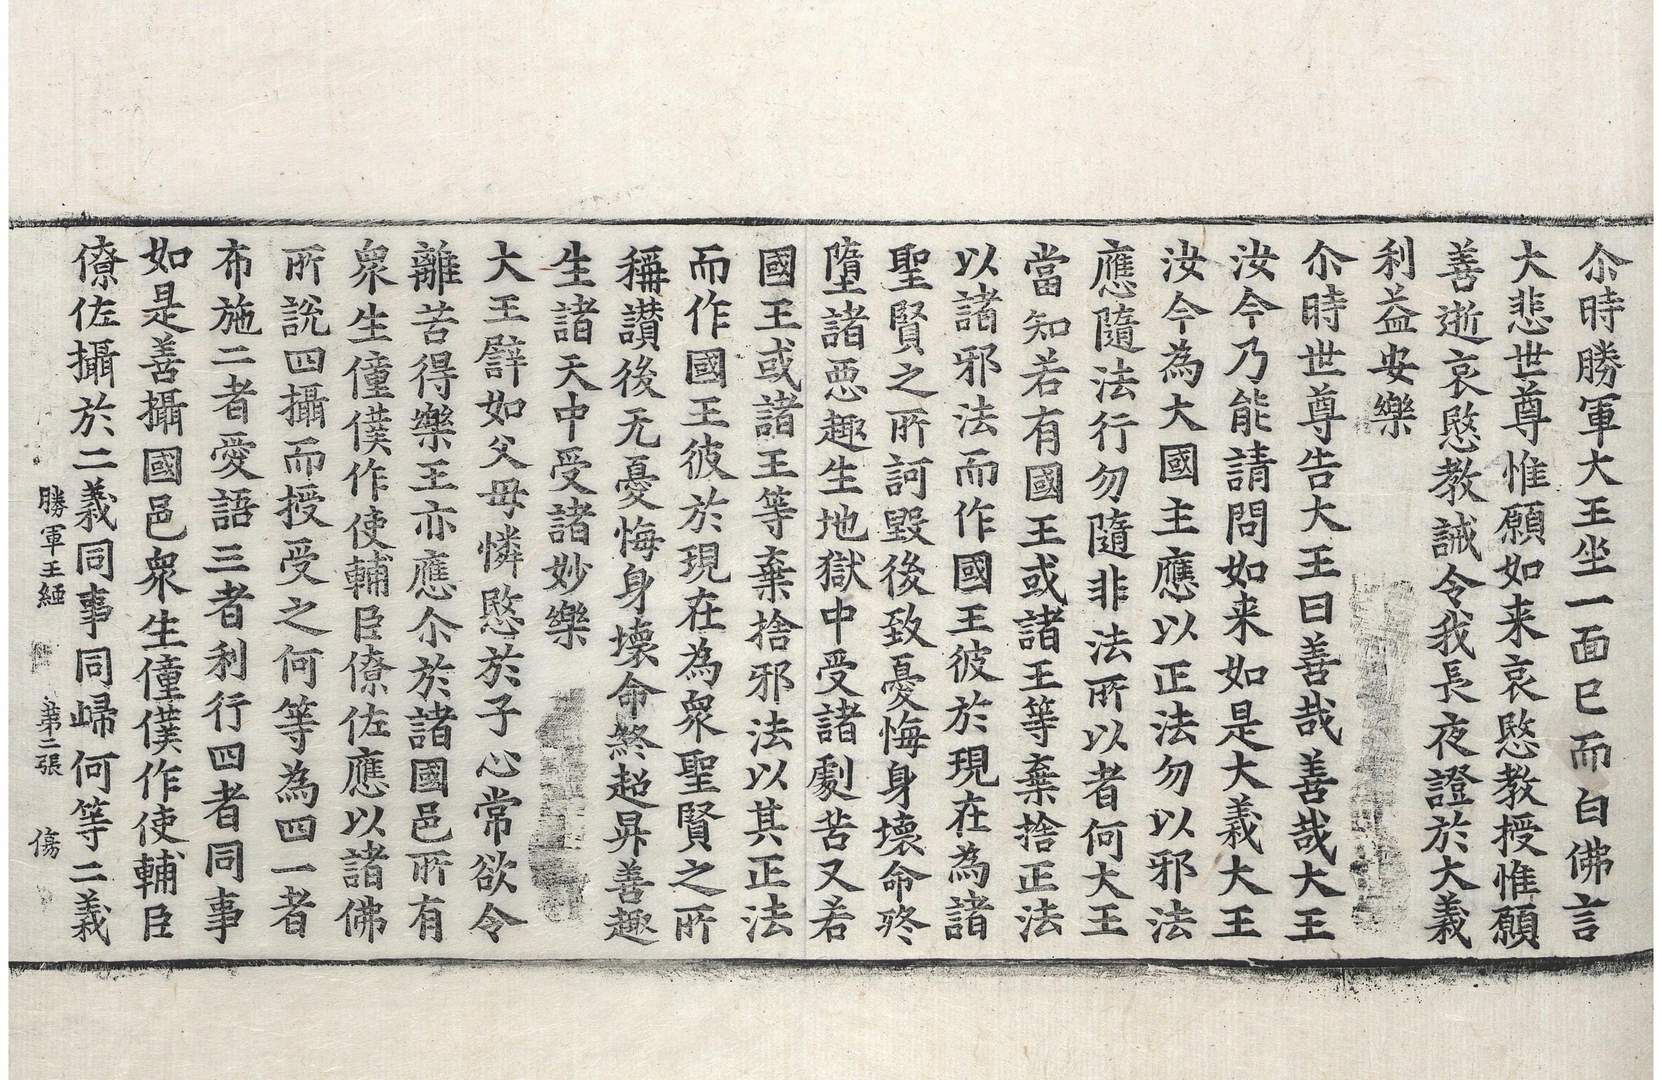 尒時勝軍大王坐一面已而白佛言
大悲世尊惟願如来哀愍教授惟願
善逝哀愍教誡令我長夜證於大義
利益安樂
尒時世尊告大王曰善哉善哉大王
汝今乃能請問如来如是大義大王
汝今為大國主應以正法勿以邪法
應隨法行勿隨非法所以者何大王
當知若有國王或諸王等棄捨正法
以諸邪法而作國王彼於現在為諸
聖賢之所訶毀後致憂悔身壞命終
墮諸惡趣生地獄中受諸劇苦又若
國王或諸王等棄捨邪法以其正法
而作國王彼於現在為衆聖賢之所
稱讃後无憂悔身壞命終超昇善趣
生諸天中受諸妙樂
大王譬如父母憐愍於子心常欲令
離苦得樂王亦應尒於諸國邑所有
衆生僮僕作使輔臣僚佐應以諸佛
所說四攝而授受之何等為四一者
布施二者愛語三者利行四者同事
如是善攝國邑衆生僮僕作使輔臣
僚佐攝於二義同事同歸何等二義
勝軍王經 第二張 傷